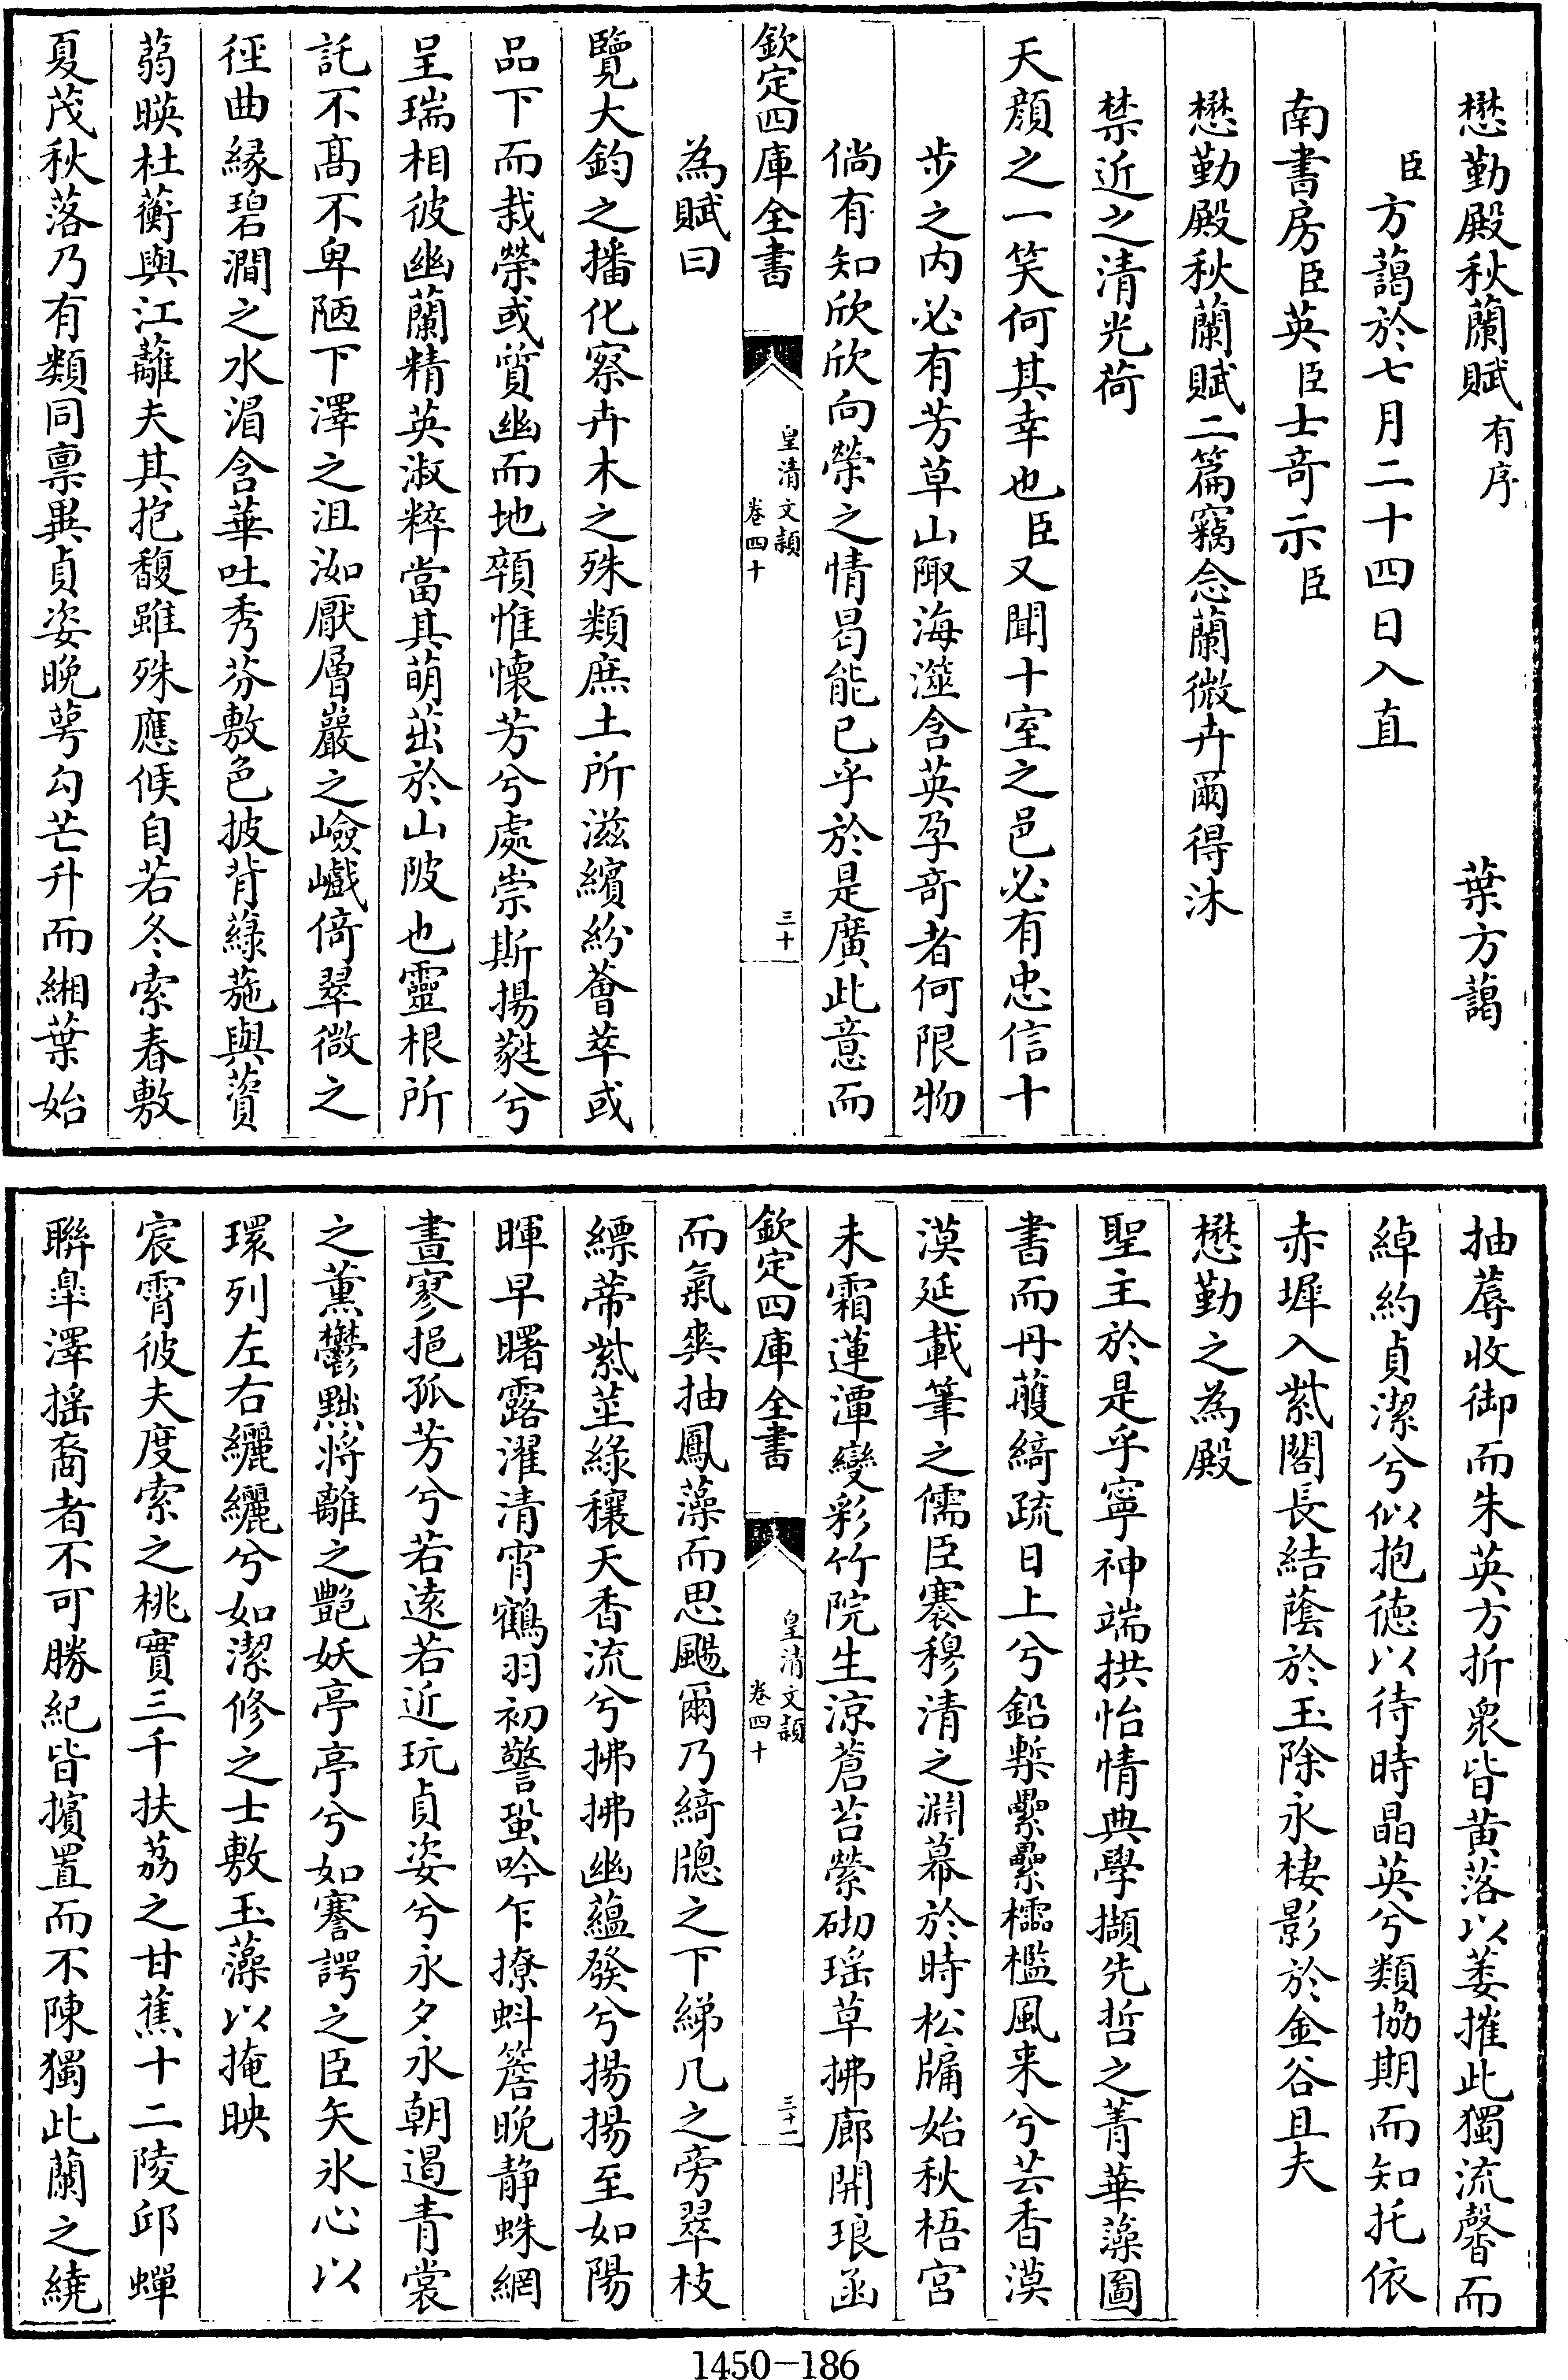 懋勤殿秋蘭賦有序　葉方藹
臣方藹於七月二十四日入直
南書房臣英臣士竒示臣
懋勤殿秋蘭賦二篇竊念蘭微卉爾得沐
禁近之清光荷
天顔之一笑何其幸也臣又聞十室之邑必有忠信十
步之内必有芳草山陬海澨含英孕竒者何限物
倘有知欣欣向榮之情曷能已乎於是廣此意而
欽定四庫全書
皇清文穎
卷四十
三十
為賦曰
覽大鈞之播化察卉木之殊類庶土所滋繽紛薈萃或
品下而栽榮或質幽而地顇惟懐芳兮處崇斯揚蕤兮
呈瑞相彼幽蘭精英淑粹當其萌茁於山陂也靈根所
託不髙不卑陋下澤之沮洳厭層巖之嶮巇倚翠微之
徑曲縁碧澗之水湄含華吐秀芬敷色披背菉葹與薋
蒻暎杜蘅與江蘺夫其抱馥雖殊應候自若冬索春敷
夏茂秋落乃有類同禀異貞姿晩萼勾芒升而緗葉始
抽蓐收御而朱英方折衆皆黄落以萎摧此獨流馨而
綽約貞潔兮似抱徳以待時晶英兮類協期而知托依
赤墀入紫閣長結蔭於玉除永棲影於金谷且夫
懋勤之為殿
聖主於是乎寧神端拱怡情典學擷先哲之菁華藻圖
書而丹雘綺疏日上兮鉛槧纍纍櫺檻風来兮芸香漠
漠延載筆之儒臣褰穆清之淵幕於時松牖始秋梧宫
未霜蓮潭變彩竹院生涼蒼苔縈砌瑶草拂廊開琅函
欽定四庫全書
皇清文穎
卷四十
三十一
而氣爽抽鳳藻而思颺爾乃綺牕之下綈几之旁翠枝
縹蒂紫莖緑穰天香流兮拂拂幽蘊發兮揚揚至如陽
暉早曙露濯清宵鶴羽初警蛩吟乍撩蚪簷晩静蛛網
晝寥挹孤芳兮若逺若近玩貞姿兮永夕永朝遏青裳
之薰鬱黜将離之艶妖亭亭兮如謇諤之臣矢氷心以
環列左右纚纚兮如潔修之士敷玉藻以掩映
宸霄彼夫度索之桃實三千扶荔之甘蕉十二陵邱蟬
聯臯澤揺裔者不可勝紀皆擯置而不陳獨此蘭之繞
1450-186